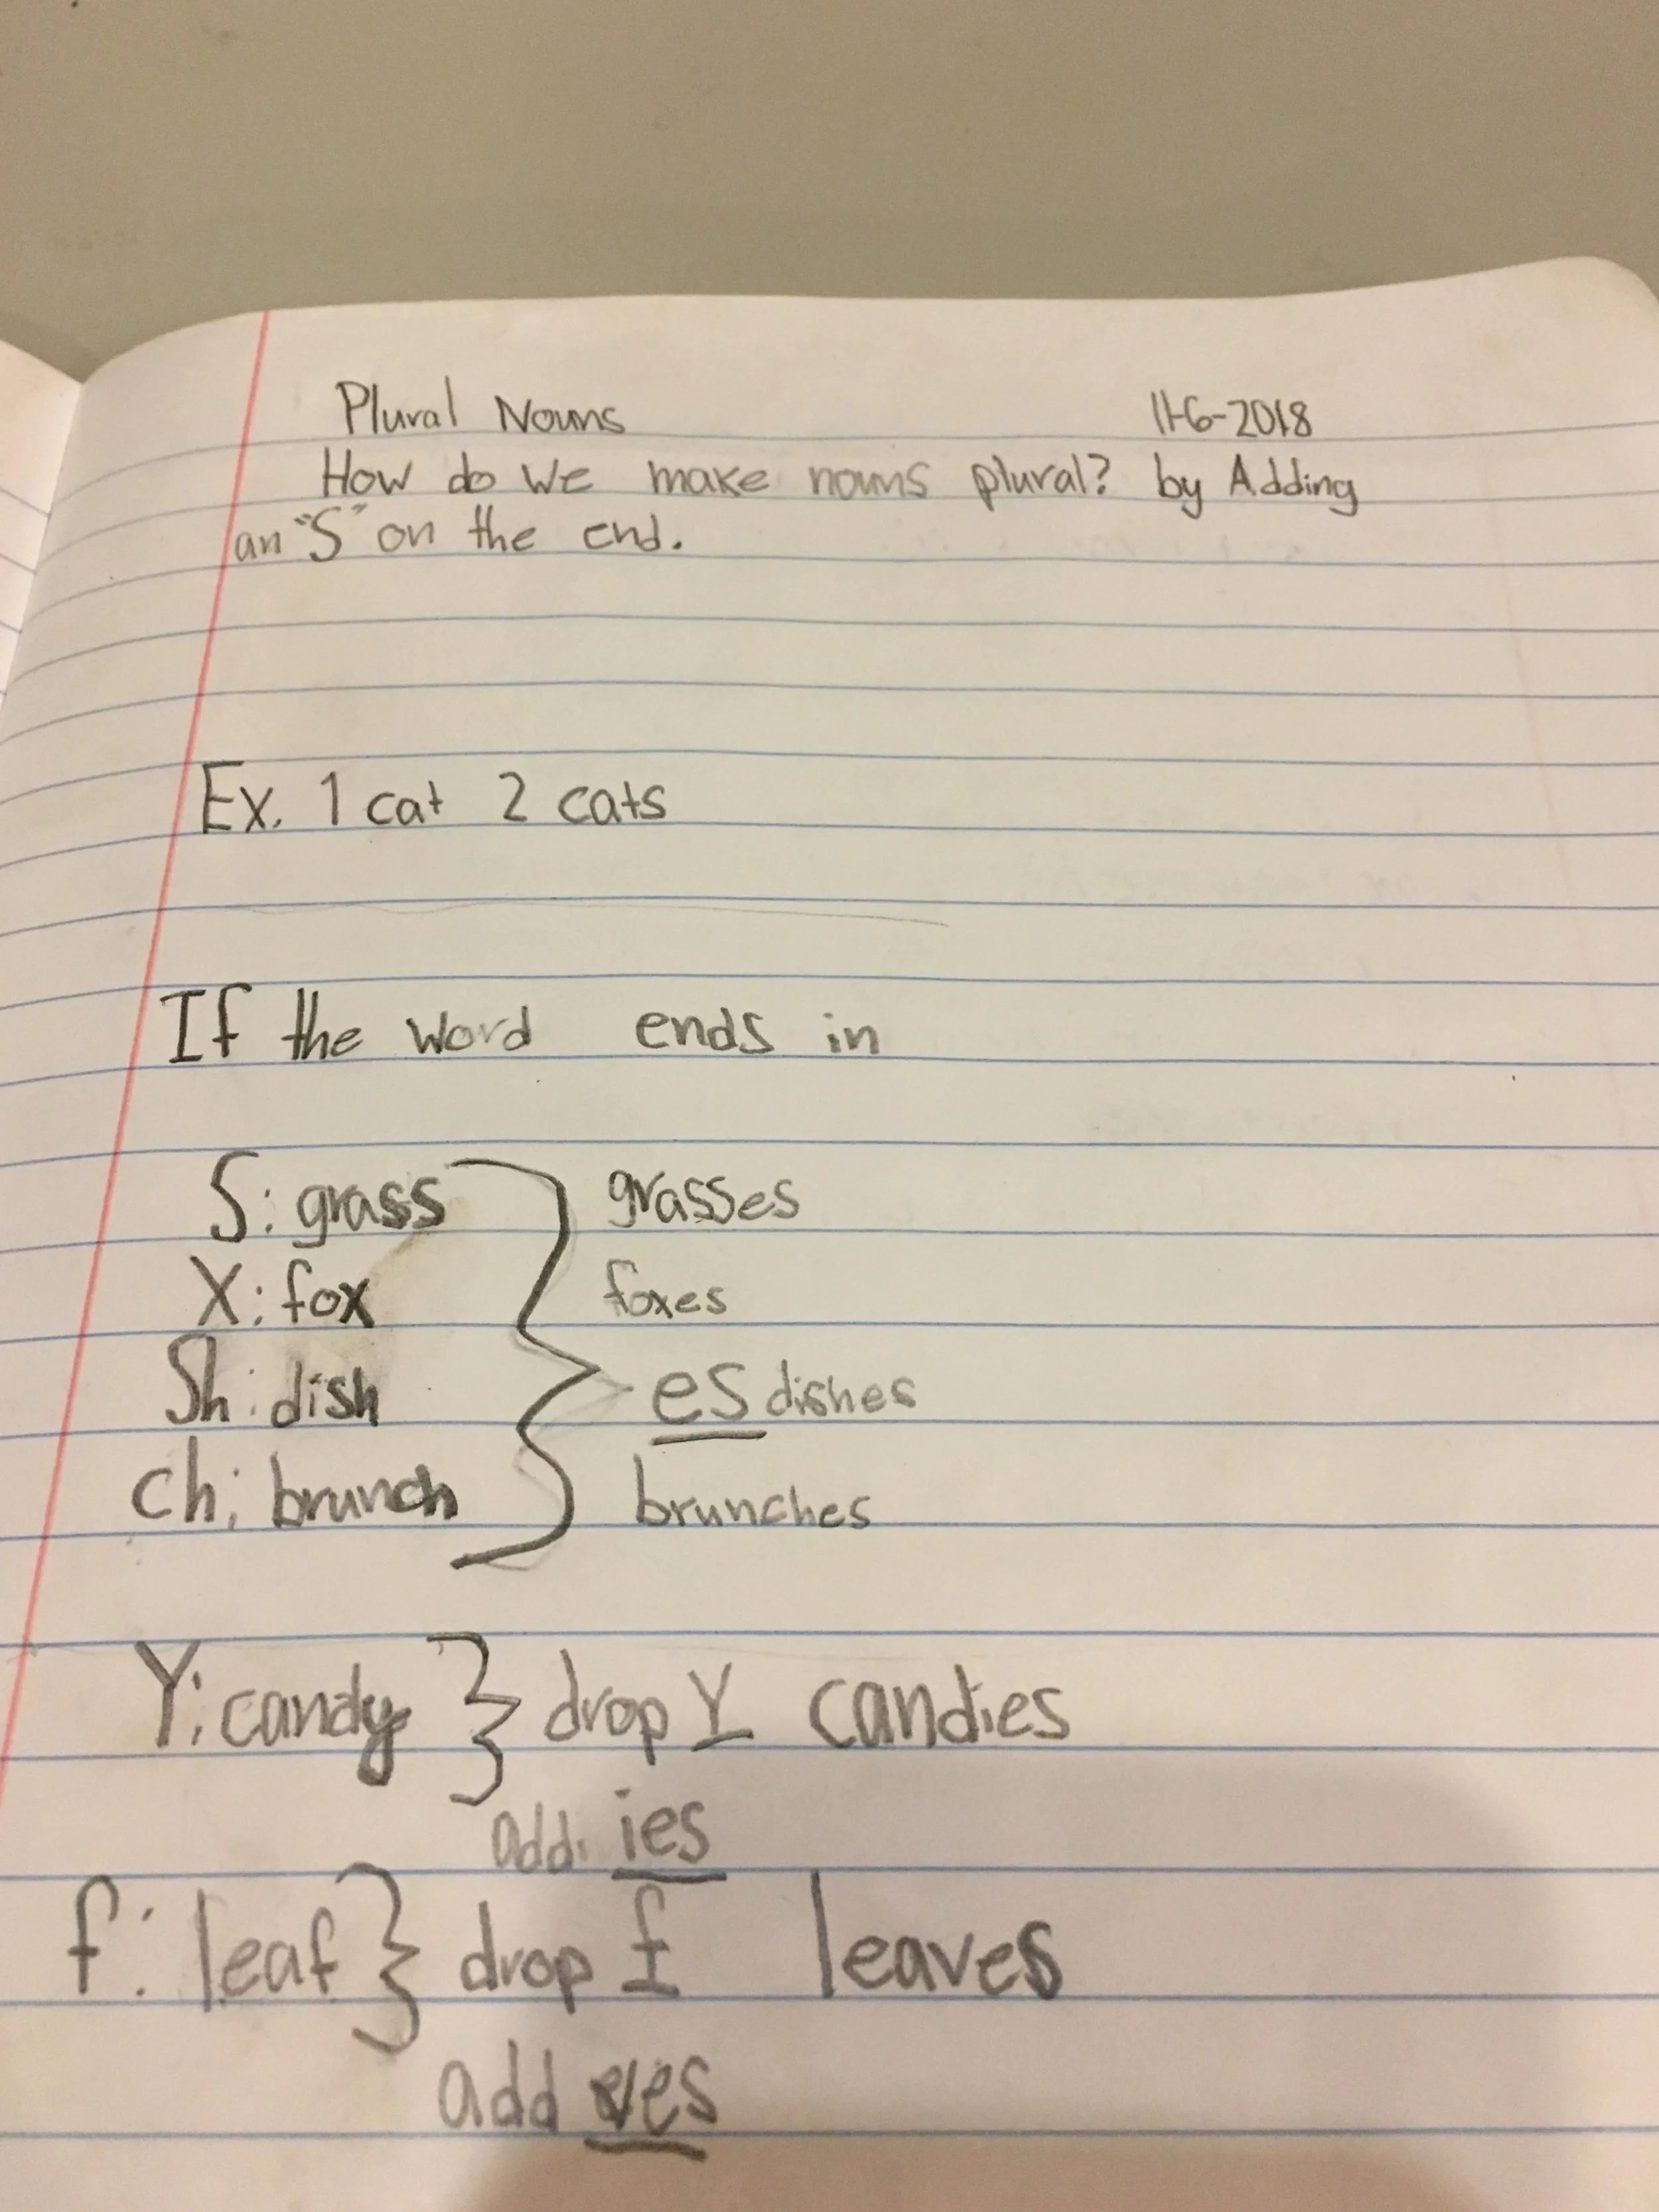 Plural Nouns 11-6-2018
How do we make nouns plural? by Adding
an "S" on the end.
Ex. 1 cat 2 cats
If the word ends in
S: grass } grasses
X: fox foxes
Sh: dish es dishes
ch: brunch brunches
Y: candy } drop Y candies
add ies
f: leaf } drop f leaves
add ves